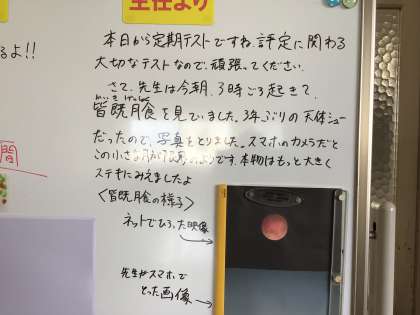 主任より
るよ!!
本日から定期テストですね。評定に関わる
大切なテストなので、頑張ってください。
さて、先生は今朝、3時ごろ起きて、
かいき げっしょく
皆既月食を見ていました。3年ぶりの天体ショー
だったので、写真をとりました。スマホのカメラだと
この小さな
です。本物はもっと大きく
ステキにみえましたよ
間
〈皆既月食の様子〉
ネットでひろった映像
先生がスマホで
とった画像